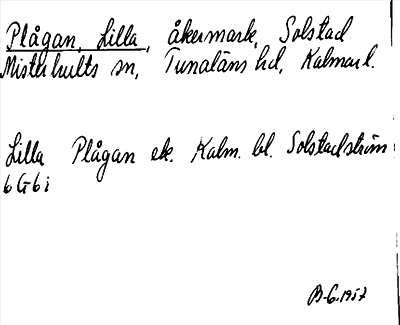 Plågan, Lilla, åkermark, Solstad
Misterhults sn, Tunaläns hd, Kalmar l.
Lilla Plågan ek. Kalm. bl. Solstadström
6 G 6 i
B-G. 1957